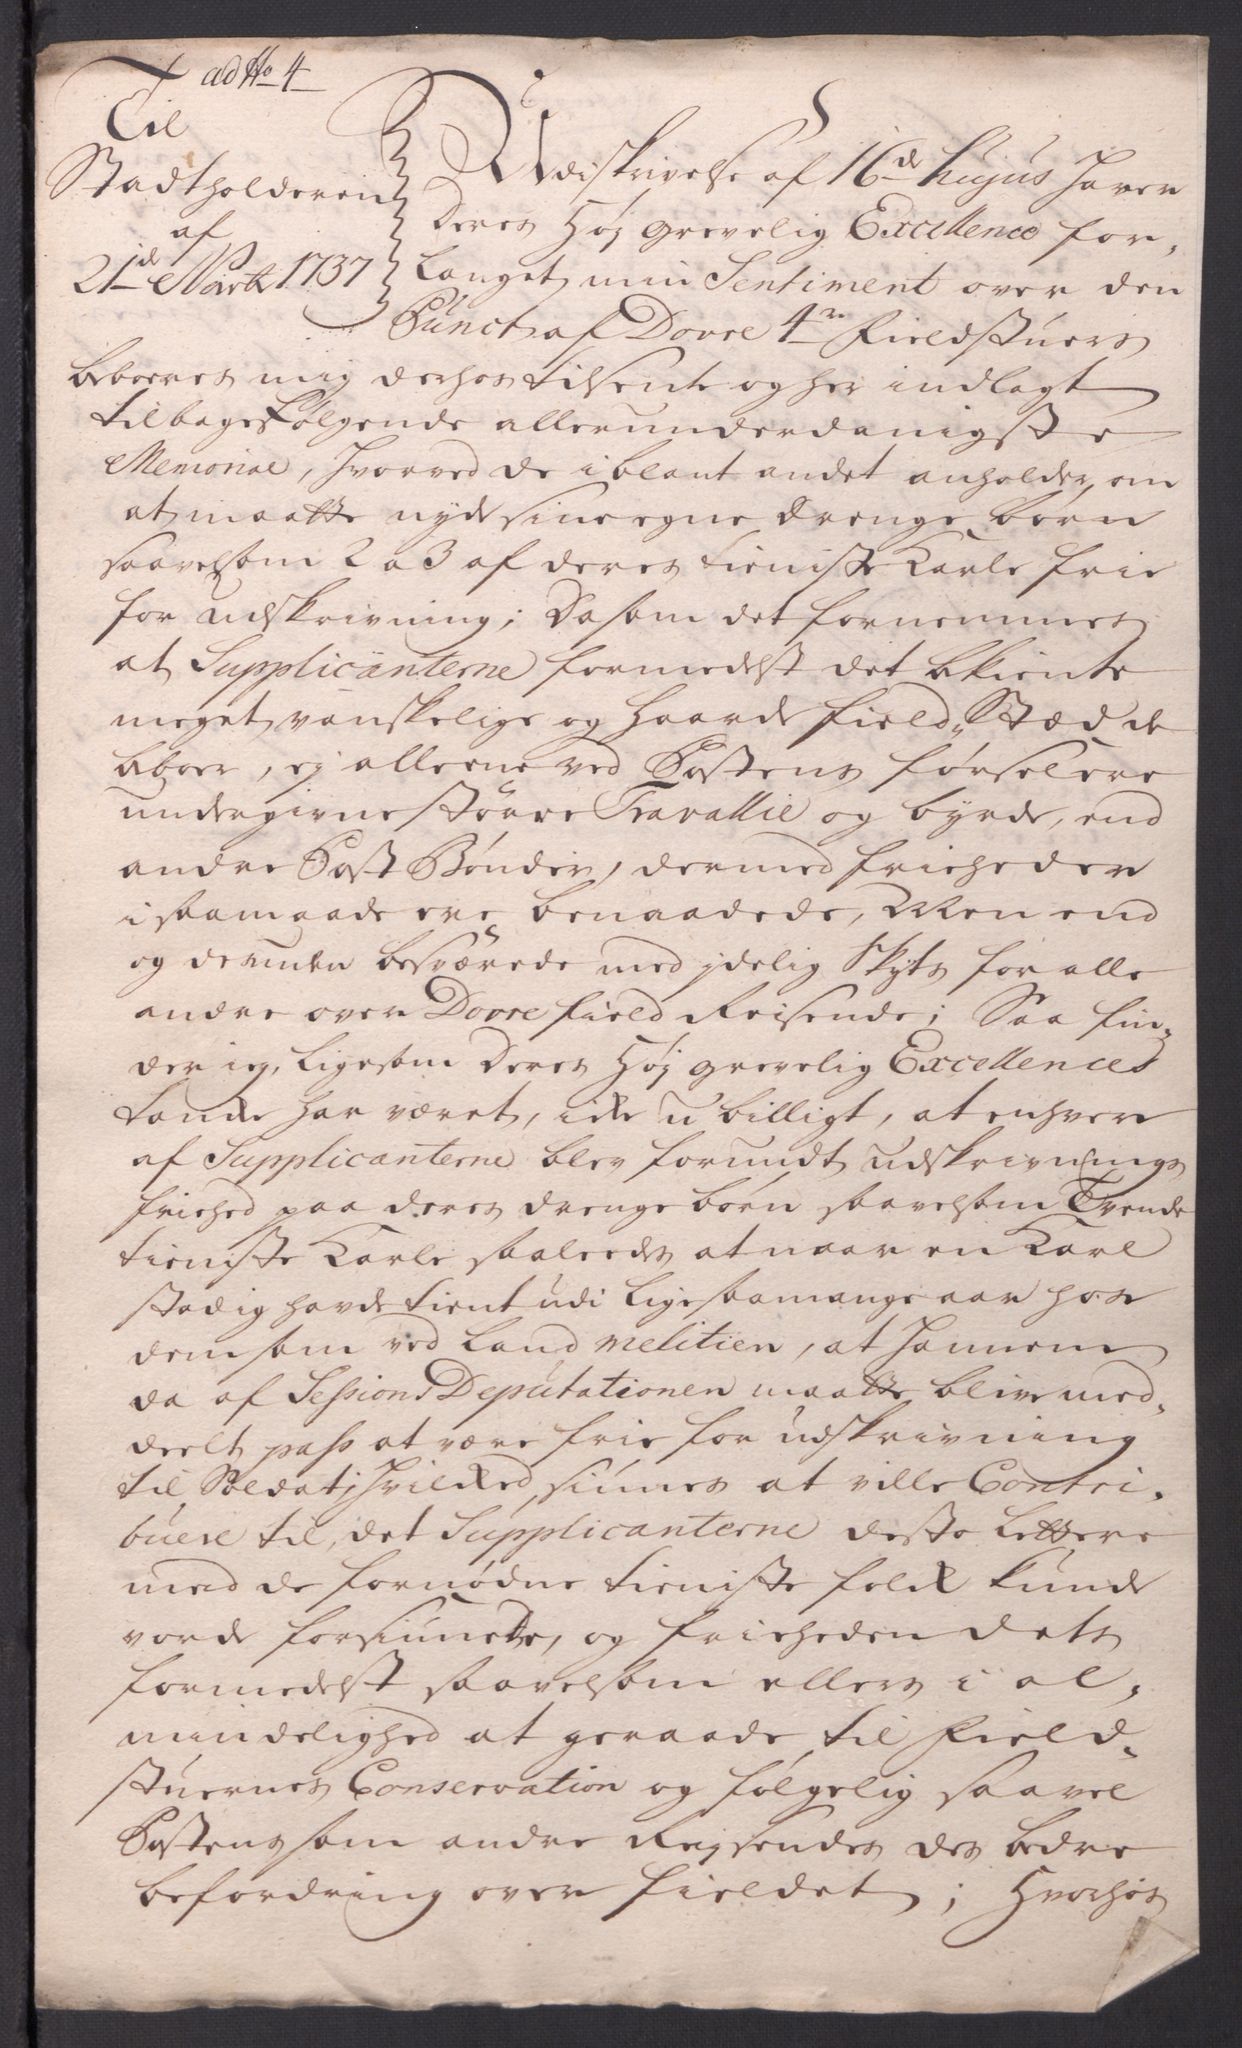 ad No 4
Til
Stadtholderen
af
21de Martz 1737
Udi skrivelse af 16de hujus haver
Deres Høj grevelig Excellence for-
langet min Sentiment over den
Punct af Dovre 4re Fieldstuers
beboeres mig derhos tilsente og her indlagt
tilbagefølgende allerunderdanigste
Memorial, hvorved de iblant andet anholder, om
at maatte nyde sine egne drenge børn
saavelsom 2 a 3 af deres tieniste Karle frie
for udskrivning; Da som det fornemmes
at Supplicanterne formedelst det bekiente
meget vanskelige og haarde field-Stæd de
beboer, ej alleene ved Postens førsel ere
undergivne større Travallie og byrde, end
andre Post Bønder, dermed friheder
i saamaade ere benaadede, Men end
og desuden besværede med jdelig Skyts for alle
andre over Dovre field Reisende; Saa fin-
der ieg, ligesom Deres Høj grevelig Excellences
tanke har været, icke u billigt, at enhver
af Supplicanterne blev forundt udskrivnings
friehed paa deres drenge børn saavelsom Tvende
tieniste Karle saaleedes at naar en Karl
stadig havde tient udi ligesaamange aar hos
dem som ved Land melitien, at hannem
da af Sessions Deputationen maatte blive med-
deelt pass at være frie for udskrivning
til Soldat; hvilked siunes at ville Contri-
buere til, det Supplicanterne desto lettere
med de fornødne tieniste folck kunde
vorde forsiunede, og frieheden dets
formedelst saavelsom ellers i al-
mindelighed at geraade til Field-
stuernes Conservation og følgelig saavel
Postens som andre Rejsendes des bedre
befordring over fieldet; Hvorhos